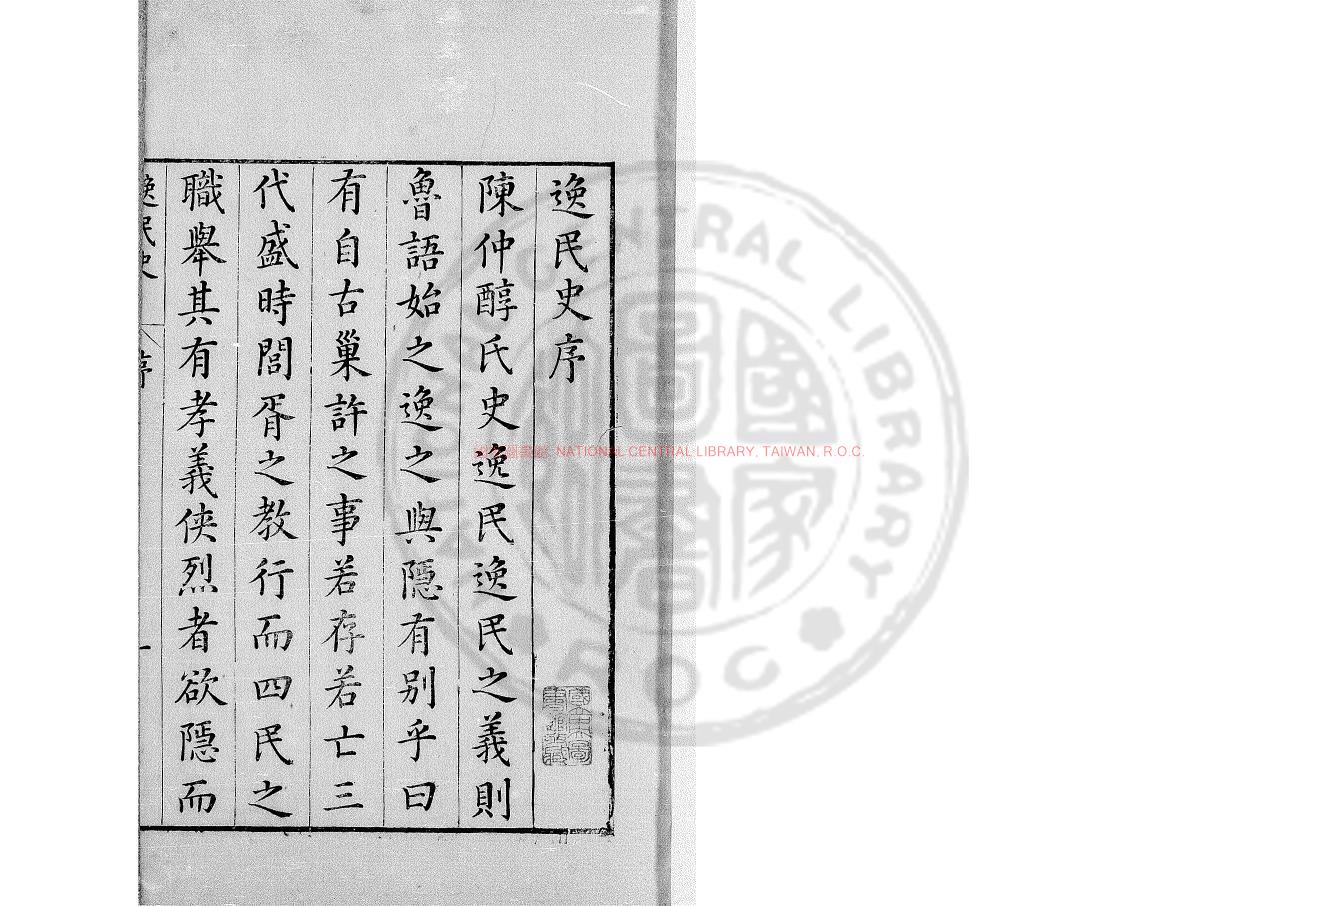 逸民史序
陳仲醇氏史逸民逸民之義則
魯語始之逸之與隱有別乎曰
有自古巢許之事若存若亡三
代盛時閭胥之教行而四民之
職舉其有孝義俠烈者欲隱而
逸民史
序
一
國家圖書館 NATIONAL CENTRAL LIBRARY, TAIWAN, R.O.C.
CENTRAL LIBRARY
R O C
國家圖書